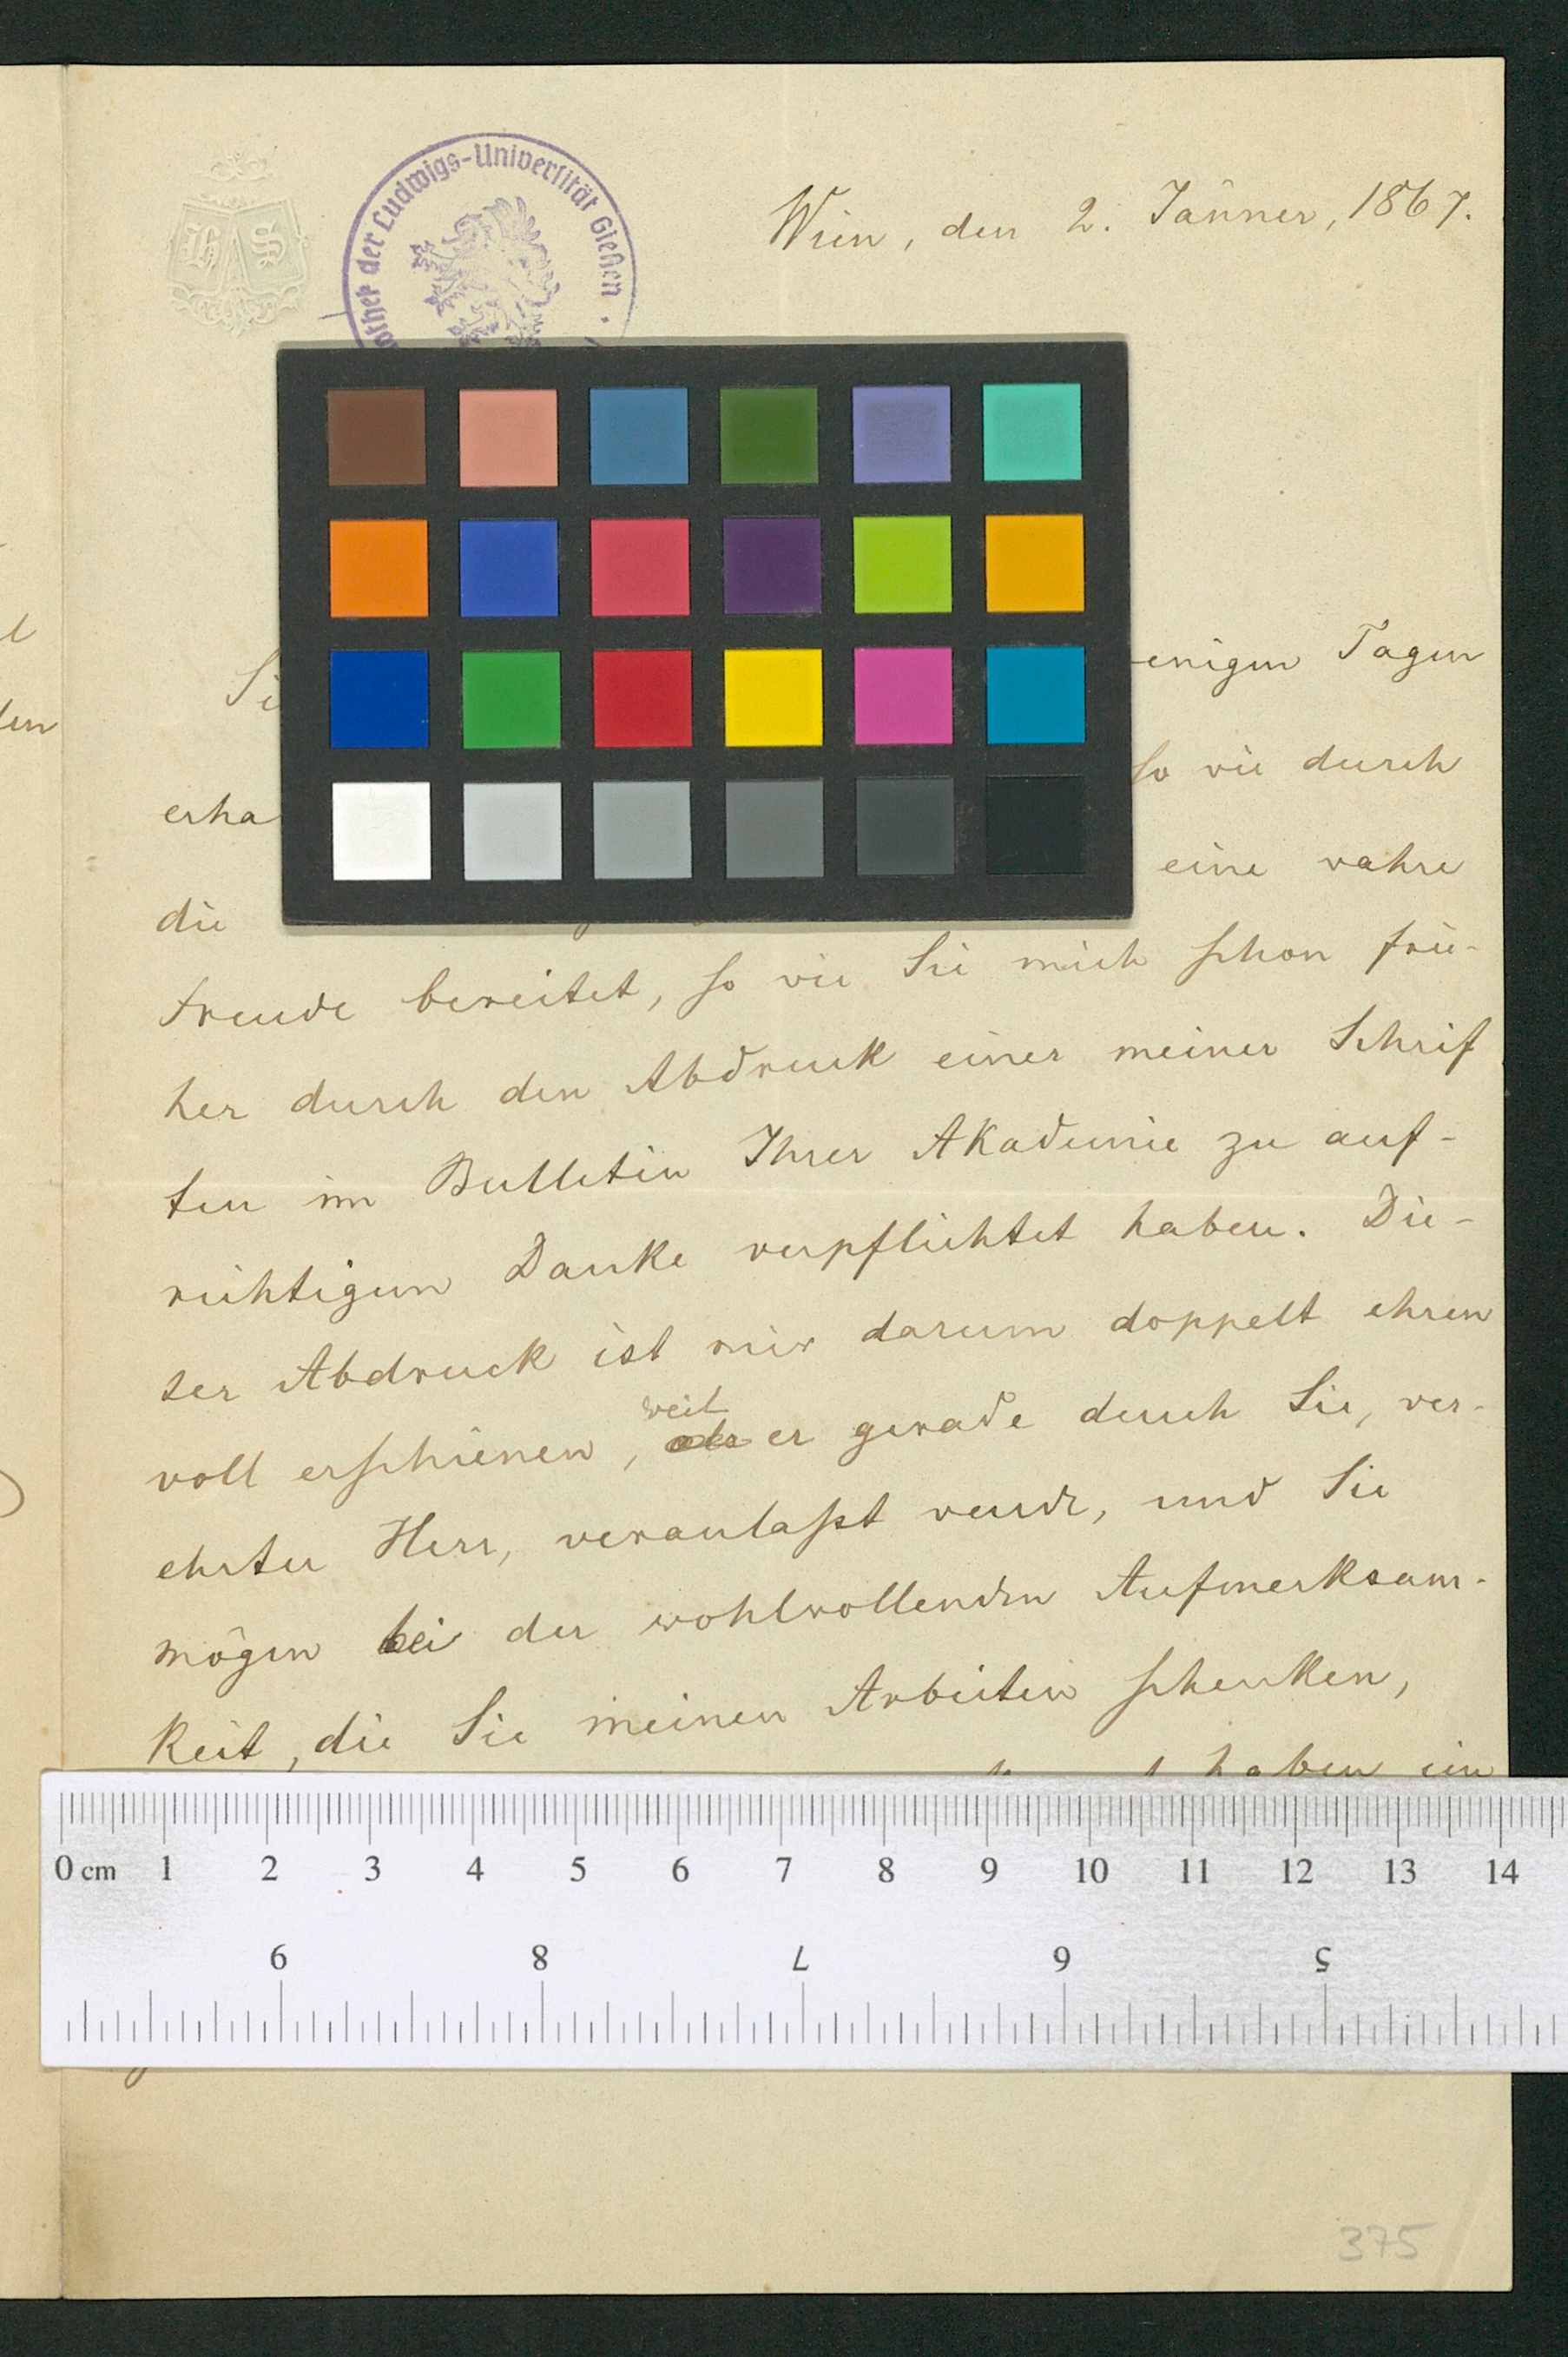 Bibliothek der Ludwigs-Universität Gießen
H S
Wien, den 2. Jänner, 1867.
enigen Tagen
so wie durch
erha
eine wahre
die
Freude bereitet, so wie Sie mich schon frü-
her durch den Abdruck einer meiner Schrif
ten im Bulletin Ihrer Akademie zu auf-
richtigem Danke verpflichtet haben. Die-
ser Abdruck ist mir darum doppelt ehren
voll erschienen, weil er gerade durch Sie, ver-
ehrter Herr, veranlaßt wurde, und Sie
mögen bei der wohlwollenden Aufmerksam-
keit, die Sie meinen Arbeiten schenken,
haben ein
0 cm 1 2 3 4 5 6 7 8 9 10 11 12 13 14
9 8 7 6 5
375